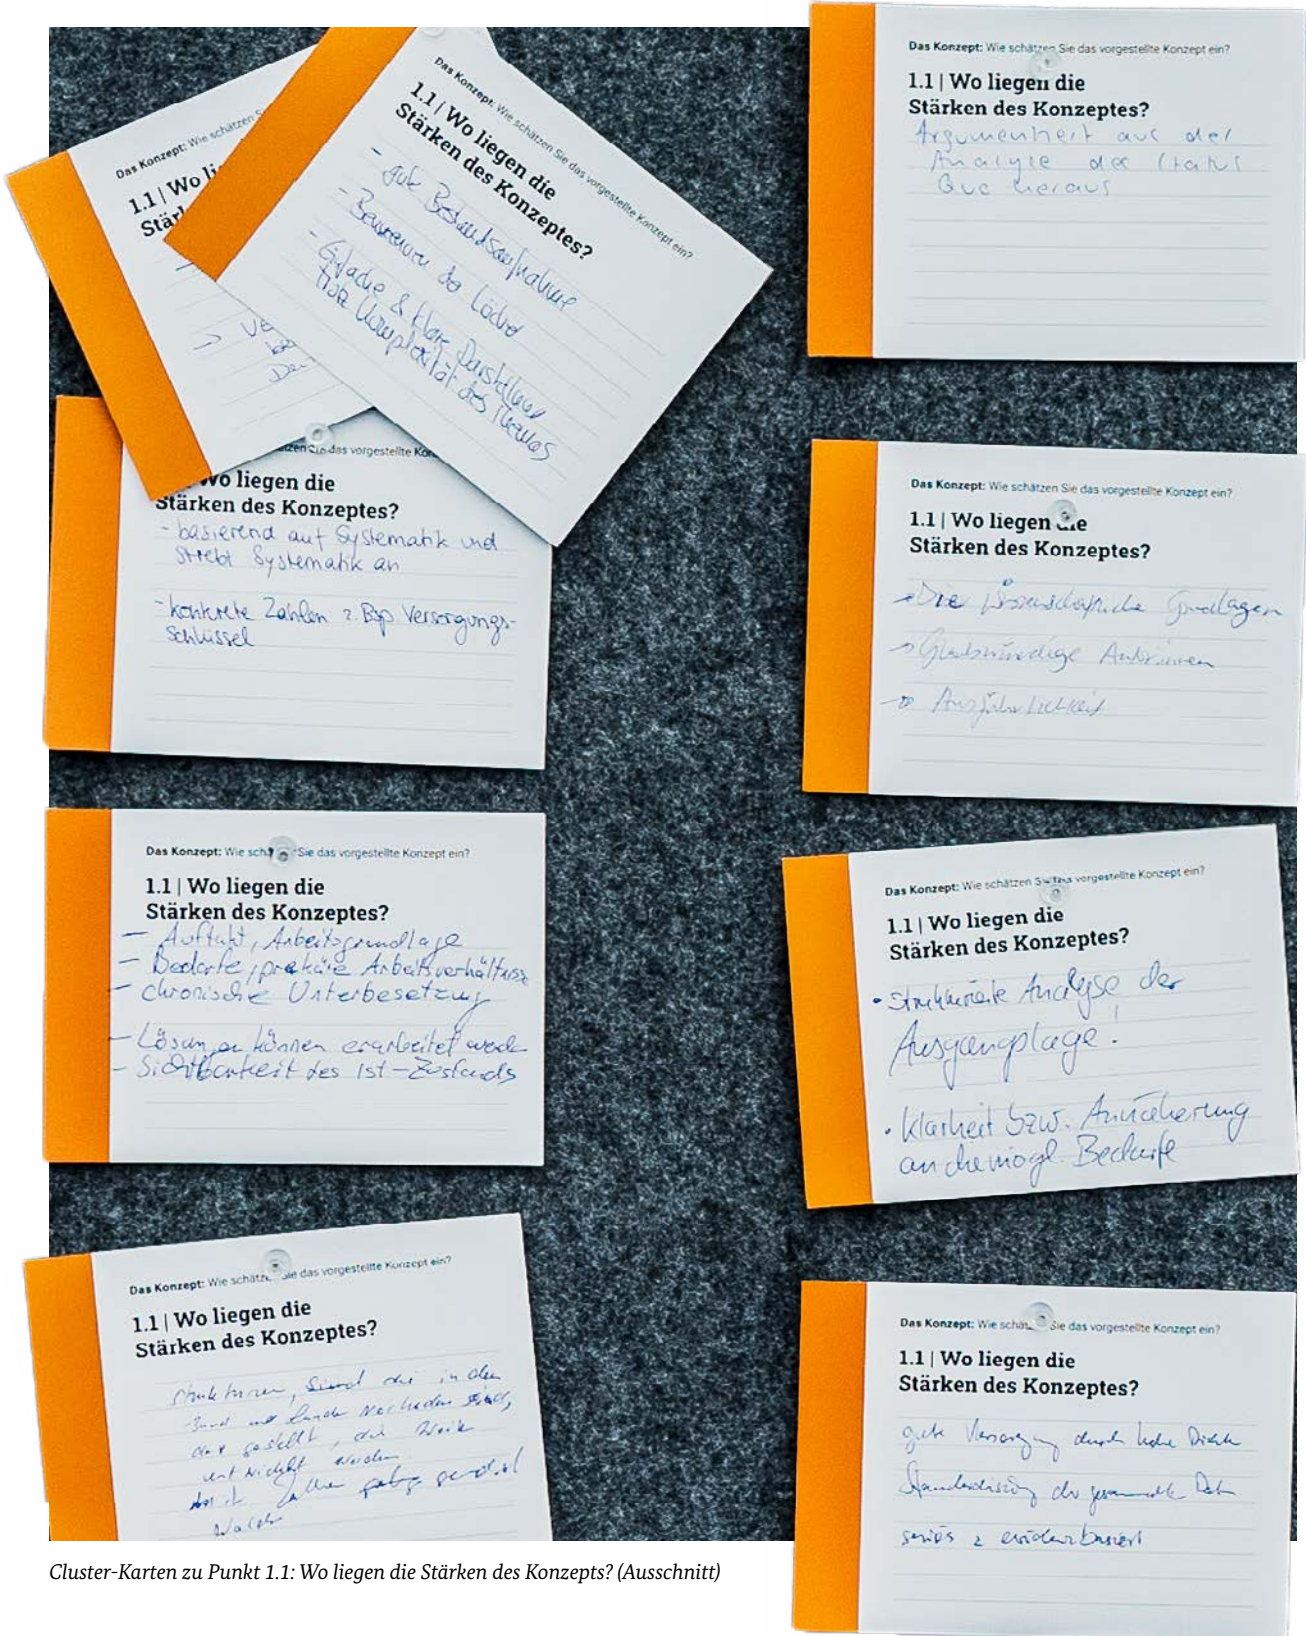 Das Konzept: Wie schätzen S
1.1 | Wo li
Stär
Das Konzept: Wie schätzen Sie das vorgestellte Konzept ein?
1.1 | Wo liegen die
Stärken des Konzeptes?
- gute Bestandsaufnahme
- Benennen der Löcher
- Einfache & klare Darstellung
trotz Komplexität des Themas
das vorgestellte Kon
Wo liegen die
Stärken des Konzeptes?
- basierend auf Systematik und
strebt Systematik an
- konkrete Zahlen z. Bsp Versorgungs-
schlüssel
Das Konzept: Wie sch Sie das vorgestellte Konzept ein?
1.1 | Wo liegen die
Stärken des Konzeptes?
- Auftakt, Arbeitsgrundlage
- Bedarfe, prekäre Arbeitsverhältnisse
- chronische Unterbesetzung
- Lösungen können erarbeitet werden
- Sichtbarkeit des Ist-Zustands
Das Konzept: Wie schätze Sie das vorgestellte Konzept ein?
1.1 | Wo liegen die
Stärken des Konzeptes?
Strukturen, die in den
dar gestellt, die
werden
Das Konzept: Wie schätzen Sie das vorgestellte Konzept ein?
1.1 | Wo liegen die
Stärken des Konzeptes?
Argumentiert aus der
Analyse des Status
Quo heraus
Das Konzept: Wie schätzen Sie das vorgestellte Konzept ein?
1.1 | Wo liegen die
Stärken des Konzeptes?
→ Die wissenschaftliche Grundlagen
→ Glaubwürdige Autorinnen
→ Ausführlichkeit
Das Konzept: Wie schätzen Sie das vorgestellte Konzept ein?
1.1 | Wo liegen die
Stärken des Konzeptes?
• Strukturierte Analyse der
Ausgangslage!
• Klarheit bzw. Annäherung
an die mögl. Bedarfe
Das Konzept: Wie schät Sie das vorgestellte Konzept ein?
1.1 | Wo liegen die
Stärken des Konzeptes?
gute Versorgung durch hohe Dichte
Standardisierung der gesammelten Daten
seriös & evidenzbasiert
Cluster-Karten zu Punkt 1.1: Wo liegen die Stärken des Konzepts? (Ausschnitt)